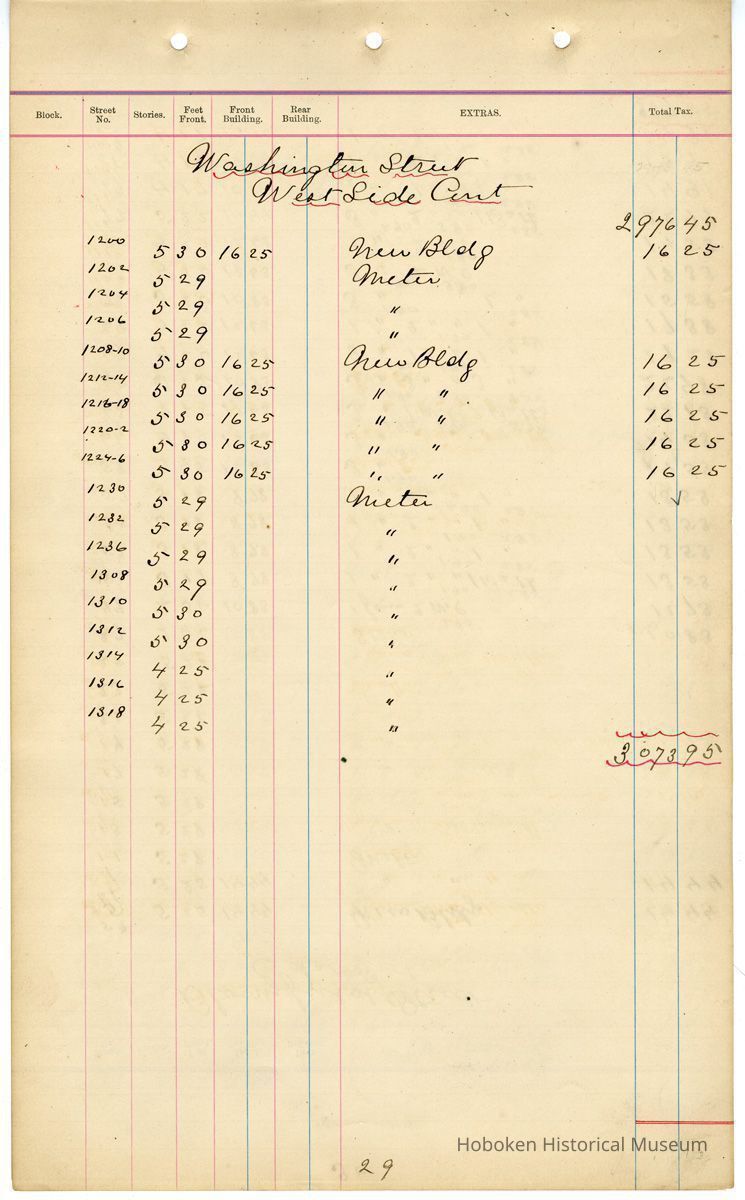 Block. Street No. Stories. Feet Front. Front Building. Rear Building. EXTRAS. Total Tax.
Washington Street
West Side Cont
2976 45
1200 5 30 16 25 New Bldg 16 25
1202 5 29 Meter
1204 5 29 "
1206 5 29 "
1208-10 5 30 16 25 New Bldg 16 25
1212-14 5 30 16 25 " " 16 25
1216-18 5 30 16 25 " " 16 25
1220-2 5 30 16 25 " " 16 25
1224-6 5 30 16 25 " " 16 25
1230 5 29 Meter √
1232 5 29 "
1236 5 29 "
1308 5 29 "
1310 5 30 "
1312 5 30 "
1314 4 25 "
1316 4 25 "
1318 4 25 "
3073 95
Hoboken Historical Museum
29